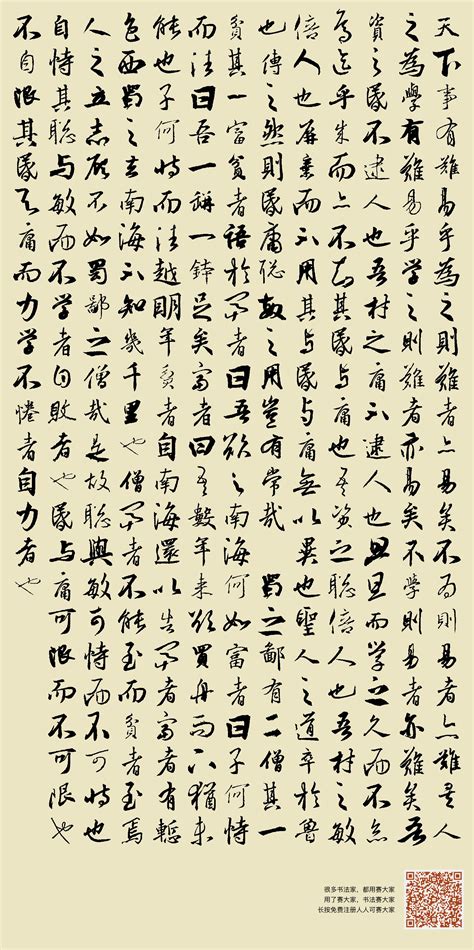 天下事有難易乎為之則難者亦易矣不為則易者亦難矣人
之為學有難易乎學之則難者亦易矣不學則易者亦難矣吾
資之昏不逮人也吾材之庸不逮人也旦旦而學之久而不怠
焉迄乎成而亦不知其昏與庸也吾資之聰倍人也吾材之敏
倍人也屏棄而不用其與昏與庸無以異也聖人之道卒於魯
也傳之然則昏庸聰敏之用豈有常哉 蜀之鄙有二僧其一
貧其一富貧者語於富者曰吾欲之南海何如富者曰子何恃
而往曰吾一瓶一缽足矣富者曰吾數年來欲買舟而下猶未
能也子何恃而往越明年貧者自南海還以告富者富者有慚
色西蜀之去南海不知幾千里也僧富者不能至而貧者至焉
人之立志顧不如蜀鄙之僧哉是故聰與敏可恃而不可恃也
自恃其聰與敏而不學者自敗者也昏與庸可限而不可限也
不自限其昏與庸而力學不倦者自力者也
很多书法家，都用赛大家
用了赛大家，书法赛大家
长按免费注册人人可赛大家